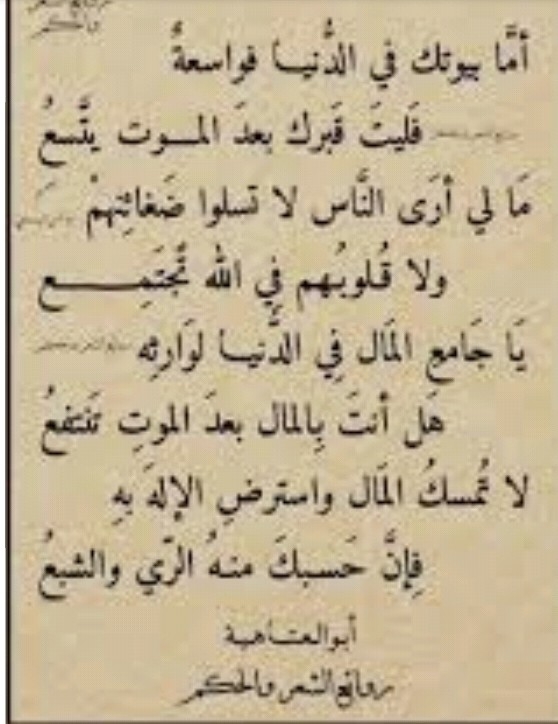 روائع الشعر
والحكم
أمَّا بيوتك في الدُّنيا فواسعةٌ
فَليتَ قَبرك بعدَ المـوت يتَّسعُ
مَا لي أرَى النَّاس لا تسلوا ضَغائِنهمْ
ولا قُلوبُهم فِي الله تَجتَمِـع
يَا جَامعِ المَال فِي الدَّنيا لوَارثِه
هَل أنتَ بِالمال بعدَ الموتِ تَنتفعُ
لا تُمسكُ المَال واسترضِ الإلهَ بهِ
فِإنَّ حَسبكَ منهُ الرّي والشبعُ
أبوالعتاهية
روائع الشعر والحكم